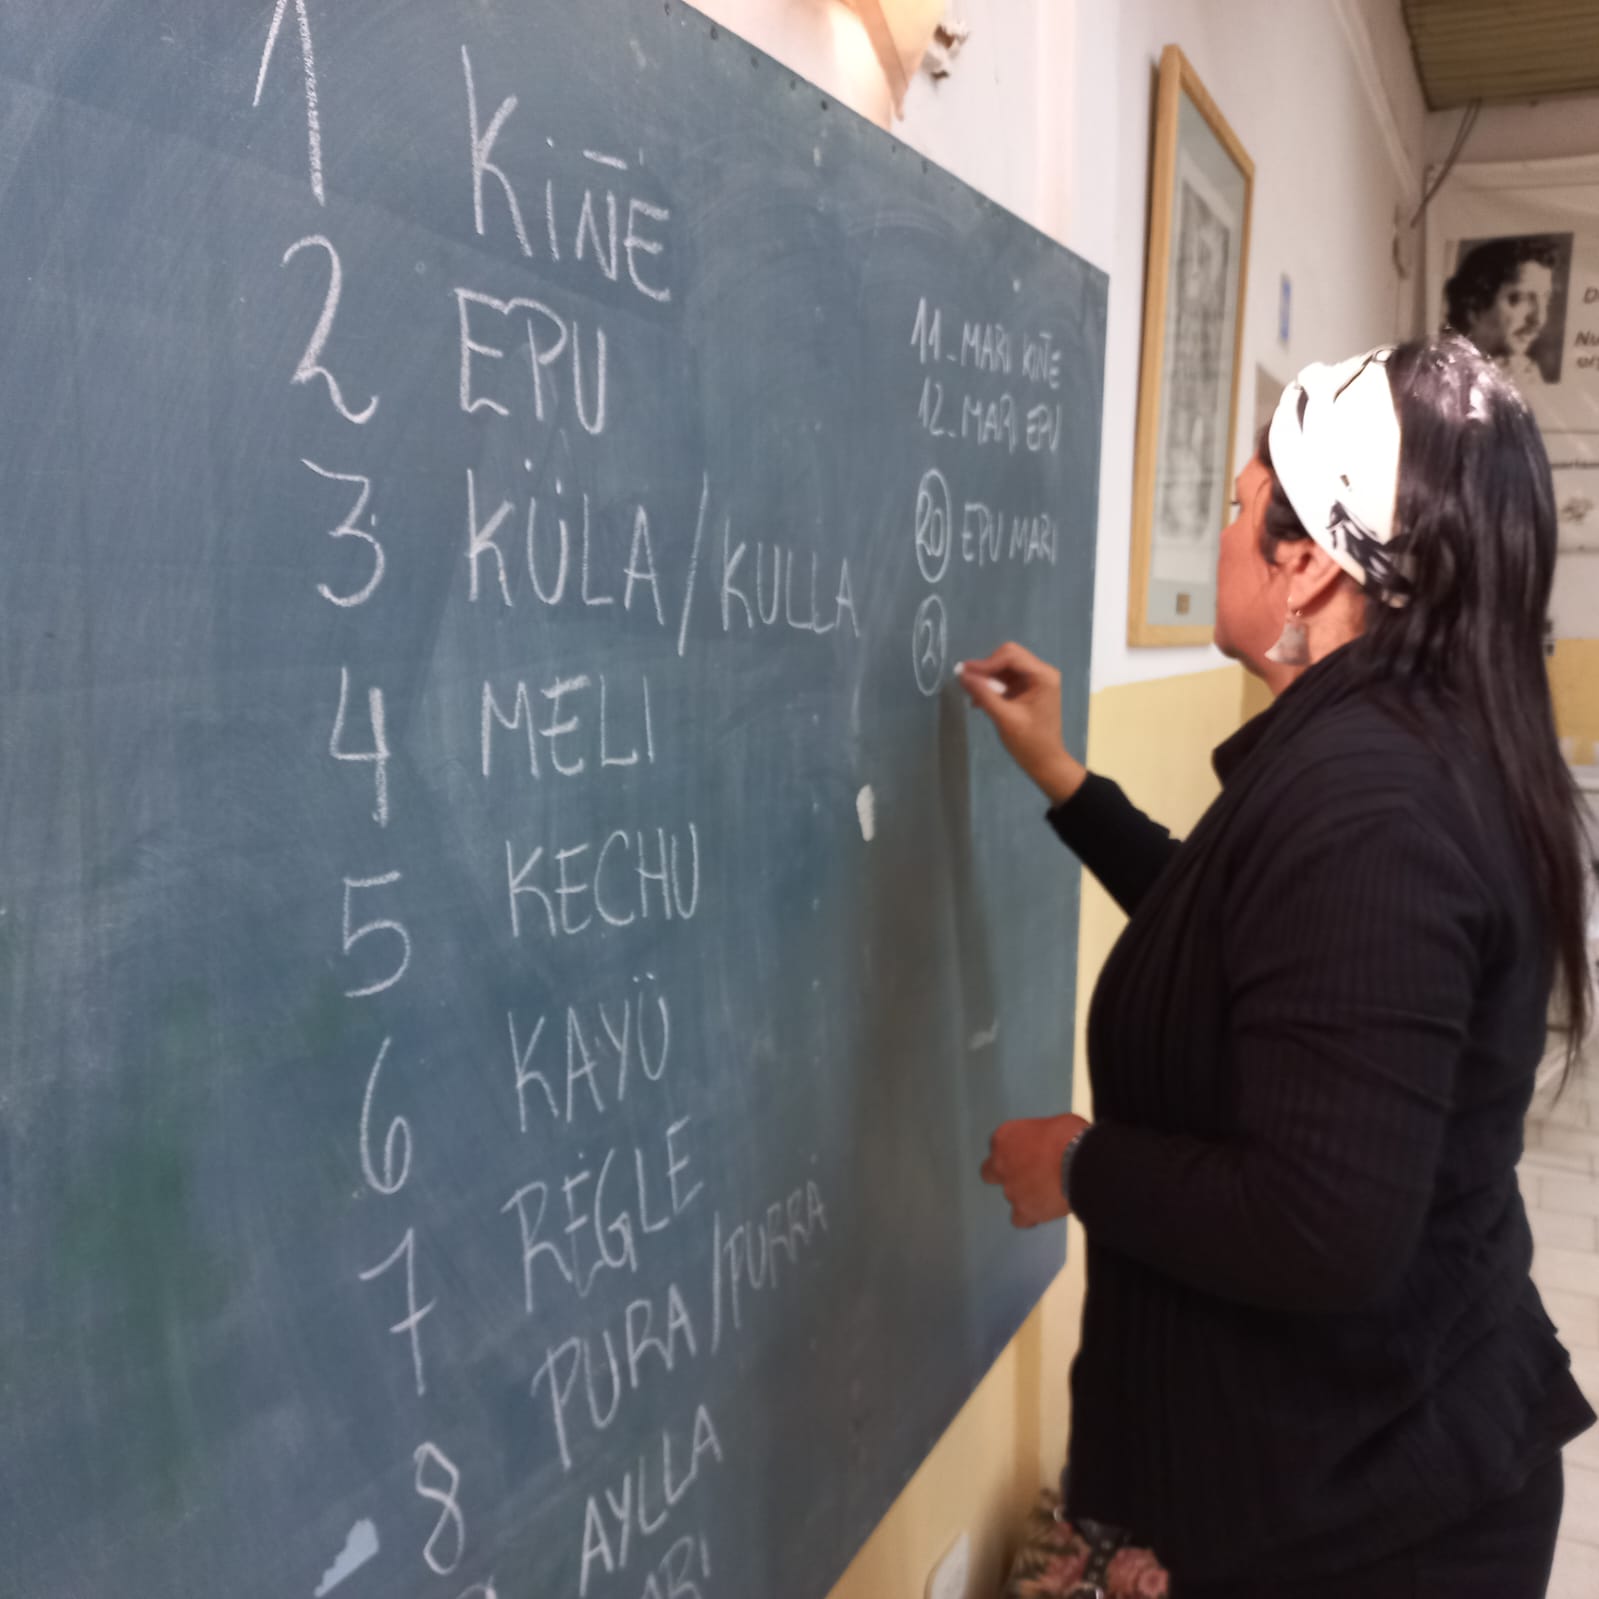 1 KIÑE
2 EPU
3 KÜLA/KULLA
4 MELI
5 KECHU
6 KAYÜ
7 REGLE
8 PURA/PURRA
AYLLA
ARI
11_MARI KIÑE
12_MARI EPU
20 EPU MARI
21